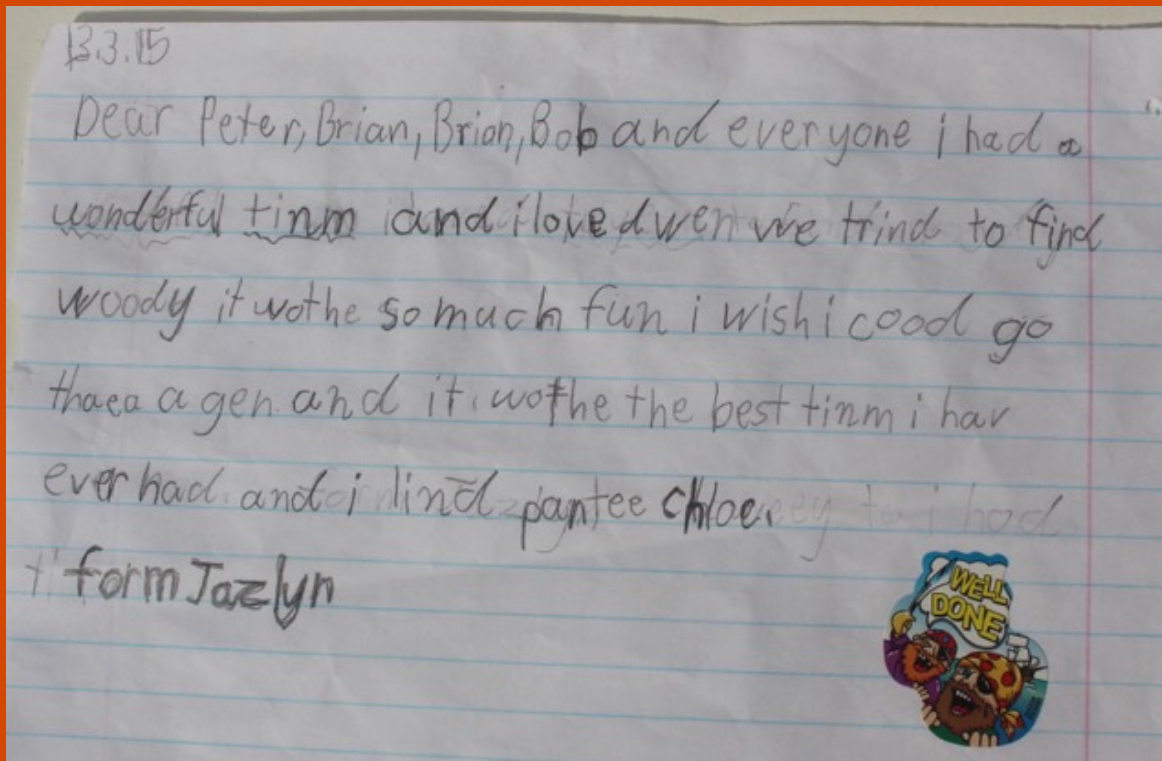 13.3.15
Dear Peter, Brian, Brian, Bob and everyone i had a
wonderful tinm and i loved wen we trind to find
woody it wothe so much fun i wish i cood go
thaea a gen. and it. wothe the best tinm i hav
ever had. and i lind pantee chloe.
form Jazlyn
WELL
DONE